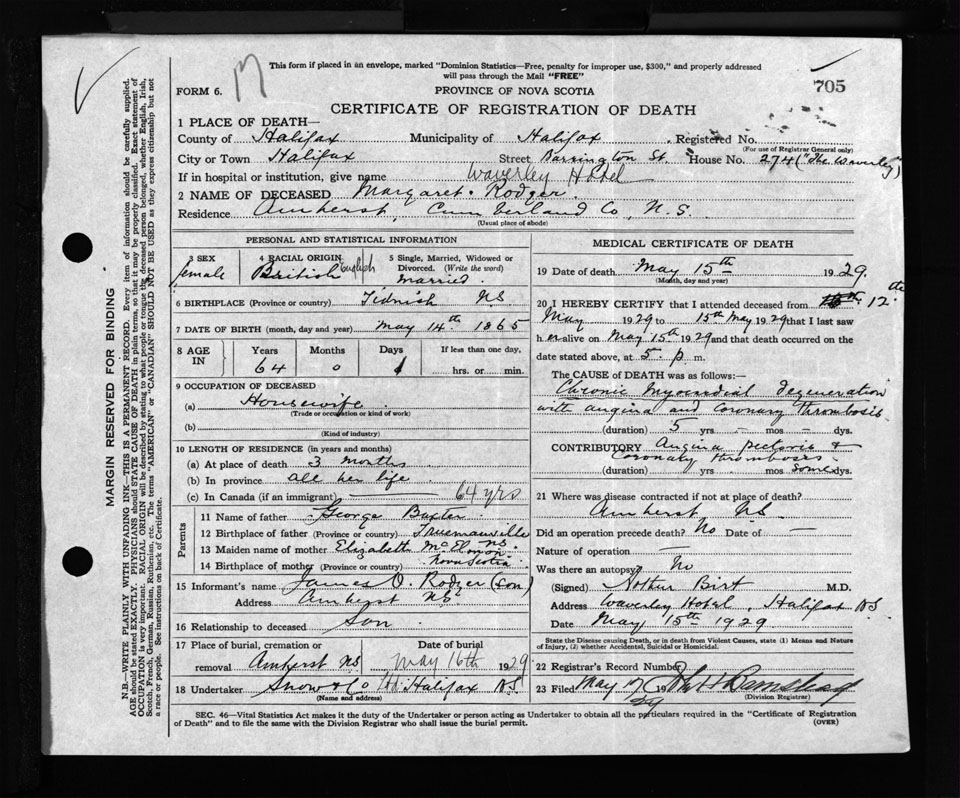 This form if placed in an envelope, marked "Dominion Statistics—Free, penalty for improper use, $300," and properly addressed
will pass through the Mail "FREE"
705
FORM 6.
PROVINCE OF NOVA SCOTIA
CERTIFICATE OF REGISTRATION OF DEATH
1 PLACE OF DEATH—
County of Halifax Municipality of Halifax Registered No.
(For use of Registrar General only)
City or Town Halifax Street Barrington St. House No. 274 ("The Waverley")
If in hospital or institution, give name Waverley Hotel
2 NAME OF DECEASED Margaret Rodger
Residence Amherst, Cumberland Co, N.S.
(Usual place of abode)
PERSONAL AND STATISTICAL INFORMATION
3 SEX female
4 RACIAL ORIGIN British English
5 Single, Married, Widowed or Divorced. (Write the word) Married
6 BIRTHPLACE (Province or country) Tidnish NS
7 DATE OF BIRTH (month, day and year) May 14th 1865
8 AGE IN Years Months Days If less than one day,
64 0 1 hrs. or min.
9 OCCUPATION OF DECEASED
(a) Housewife
(Trade or occupation or kind of work)
(b)
(Kind of industry)
10 LENGTH OF RESIDENCE (in years and months)
(a) At place of death 3 months
(b) In province all her life
(c) In Canada (if an immigrant) 64 yrs
Parents
11 Name of father George Baxter
12 Birthplace of father (Province or country) Truemanville NS
13 Maiden name of mother Elizabeth McElmon
14 Birthplace of mother (Province or country) Nova Scotia
15 Informant's name James O. Rodger (son)
Address Amherst NS
16 Relationship to deceased Son
17 Place of burial, cremation or removal Amherst NS Date of burial May 16th 1929
18 Undertaker Snow & Co Halifax NS
(Name and address)
MEDICAL CERTIFICATE OF DEATH
19 Date of death May 15th 1929.
(Month, day and year)
20 I HEREBY CERTIFY that I attended deceased from 12th
May 1929 to 15th May 1929 that I last saw
her alive on May 15th 1929 and that death occurred on the
date stated above, at 5. p. m.
The CAUSE of DEATH was as follows:—
Chronic Myocardial Degeneration
with angina and Coronary Thrombosis
(duration) 5 yrs — mos — dys.
CONTRIBUTORY Angina pectoris &
Coronary thrombosis
(duration) yrs. mos some dys.
21 Where was disease contracted if not at place of death?
Amherst NS
Did an operation precede death? No Date of —
Nature of operation —
Was there an autopsy? No
(Signed) Birt M.D.
Address Waverley Hotel, Halifax NS
Date May 15th 1929
State the Disease causing Death, or in death from Violent Causes, state (1) Means and Nature
of Injury, (2) whether Accidental, Suicidal or Homicidal.
22 Registrar's Record Number
23 Filed May 17
(Division Registrar)
SEC. 46—Vital Statistics Act makes it the duty of the Undertaker or person acting as Undertaker to obtain all the particulars required in the "Certificate of Registration
of Death" and to file the same with the Division Registrar who shall issue the burial permit.
(OVER)
MARGIN RESERVED FOR BINDING
N.B.—WRITE PLAINLY WITH UNFADING INK—THIS IS A PERMANENT RECORD. Every item of information should be carefully supplied.
AGE should be stated EXACTLY. PHYSICIANS should STATE CAUSE OF DEATH in plain terms, so that it may be properly classified. Exact statement of
OCCUPATION is very important. RACIAL ORIGIN will be described by stating to what people or tongue the deceased person belonged, whether English, Irish,
Scotch, French, German, Russian, Ruthenian, etc. The terms "AMERICAN" or "CANADIAN" SHOULD NOT BE USED as they express citizenship but not
a race or people. See instructions on back of Certificate.